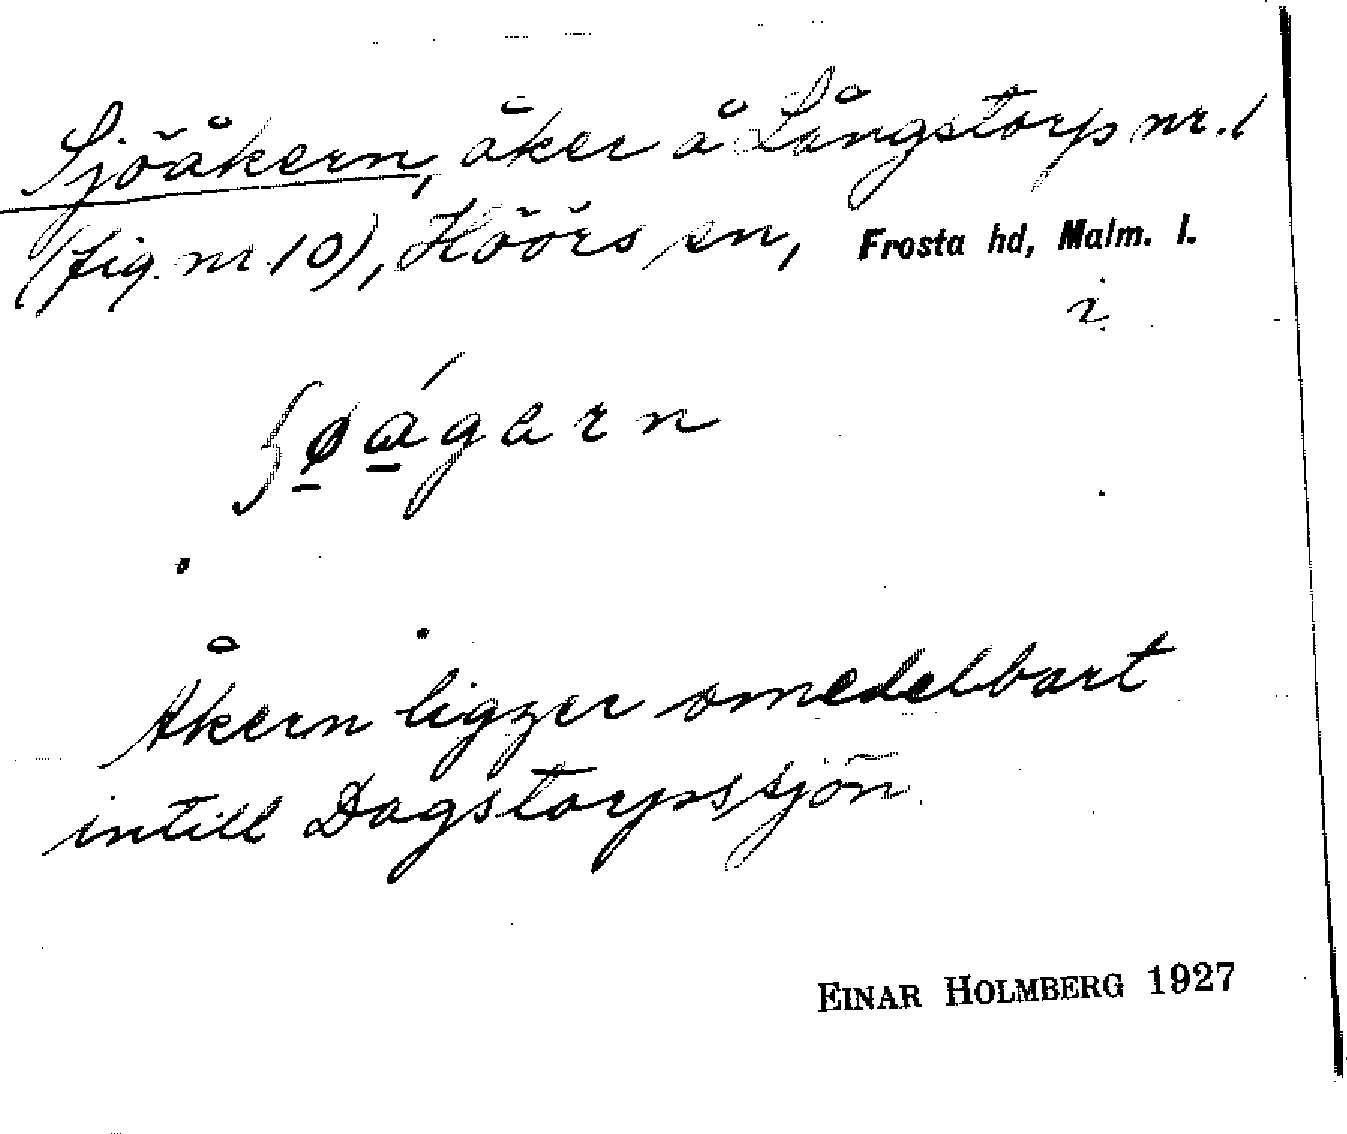 Sjöåkern, åker å Långstorp nr. 1
(fig. nr. 10), Höörs sn, Frosta hd, Malm. l.
i
Åkern ligger omedelbart
intill Dagstorpssjön.
EINAR HOLMBERG 1927